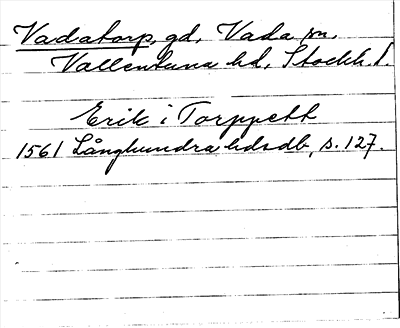 Vadatorp, gd, Vada sn,
Vallentuna hd, Stockh. l.
Erik i Torppett
1561 Långhundra hdsdb, s. 127.